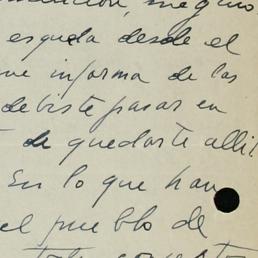 esquela desde el
informa de las
debiste pasar en
de quedarte allí
En lo que han
el pueblo de